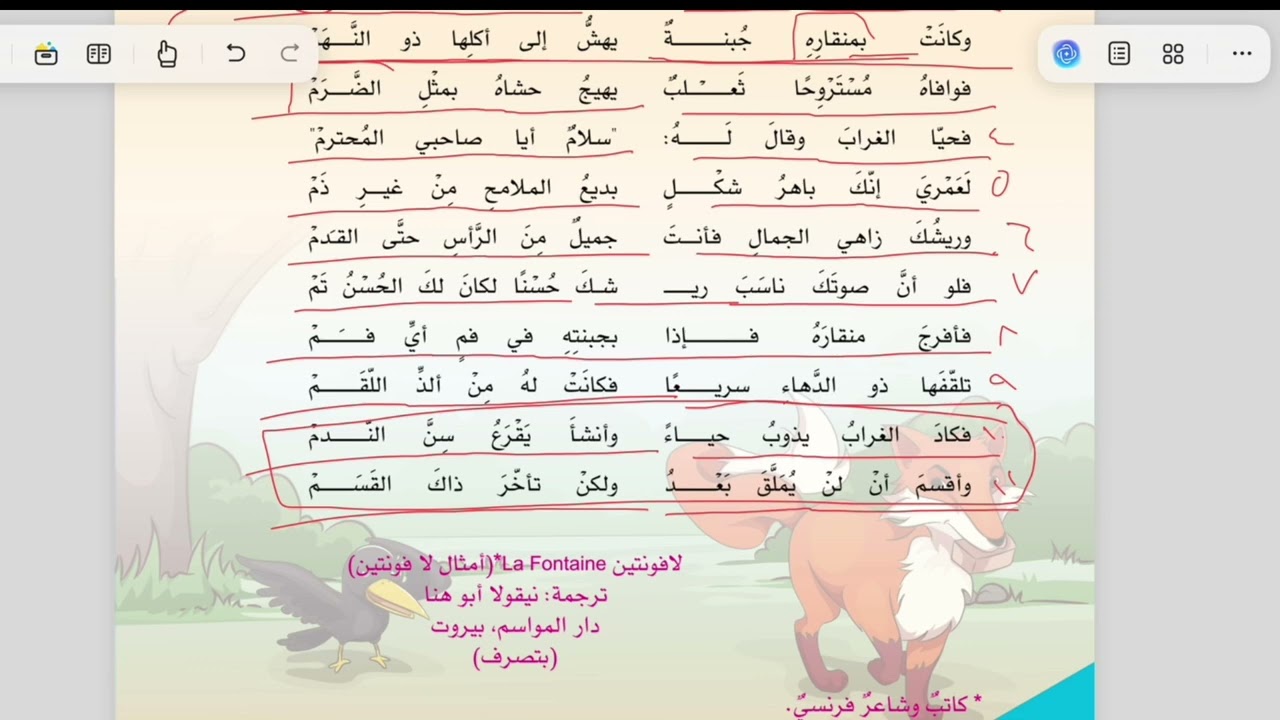 وكانَتْ بمنقارِهِ جُبنـــــةٌ يهشُّ إلى أكلِها ذو
فوافاهُ مُسْتَرْوِحًا ثَعـــلبٌ يهيجُ حشاهُ بمثْلِ الضَّـــرَمْ
فحيّا الغرابَ وقالَ لَـــهُ: "سلامٌ أيا صاحبي المُحترمْ" ٤
لَعَمْريَ إنّكَ باهرُ شكْـــلٍ بديعُ الملامحِ مِنْ غيـرِ ذَمْ ٥
وريشُكَ زاهي الجمالِ فأنـتَ جميلٌ مِنَ الرَّأسِ حتَّى القدَمْ ٦
فلو أنَّ صوتَكَ ناسَبَ ريـــ شـكَ حُسْنًا لكانَ لكَ الحُسْنُ تَمْ ٧
فأفرجَ منقارَهُ فـــــإذا بجبنتِهِ في فمٍ أيِّ فـــمْ ٨
تلقّفَها ذو الدَّهاءِ سريـــعًا فكانَتْ لهُ مِنْ ألذِّ اللّقَـــمْ ٩
فكادَ الغرابُ يذوبُ حيـــاءً وأنشأَ يَقْرَعُ سِنَّ النّـــدمْ ١٠
وأقسمَ أنْ لنْ يُمَلَّقَ بَعْـــدُ ولكنْ تأخّرَ ذاكَ القَسَـــمْ ١١
لافونتين La Fontaine*(أمثال لا فونتين)
ترجمة: نيقولا أبو هنا
دار المواسم، بيروت
(بتصرف)
* كاتبٌ وشاعرٌ فرنسيٌ.